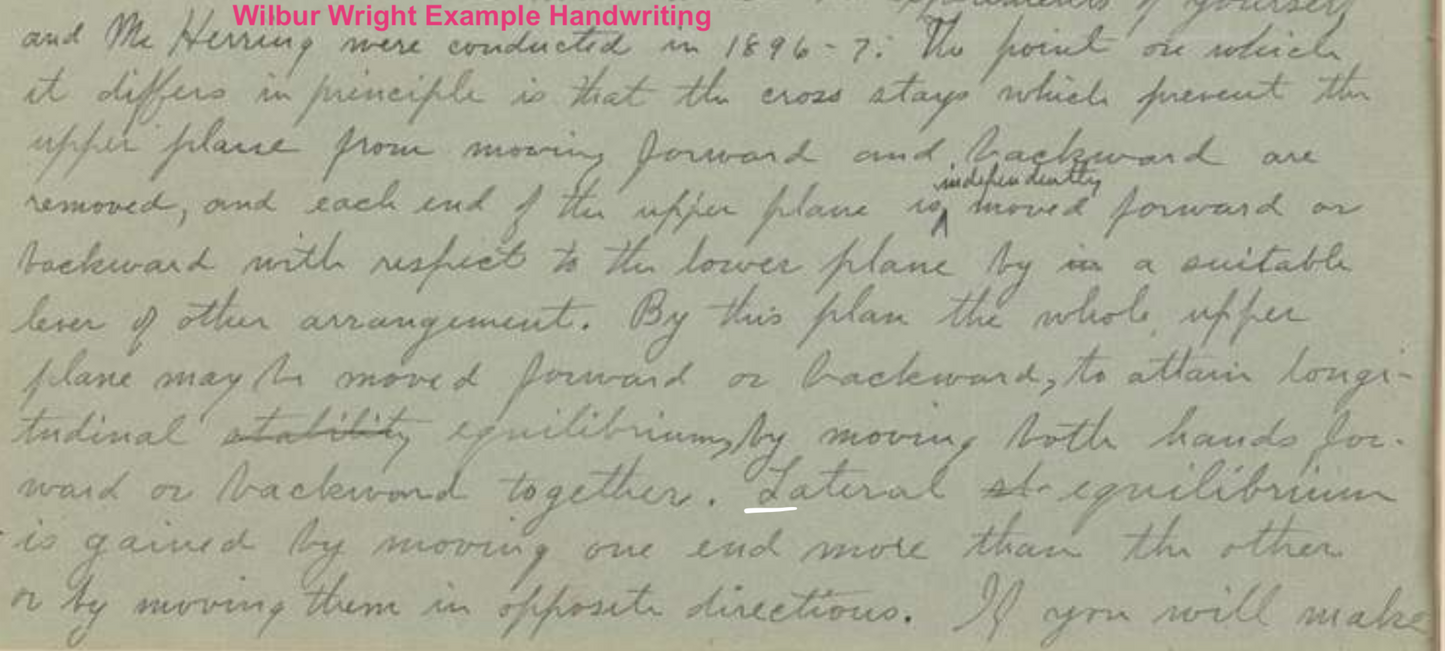 Wilbur Wright Example Handwriting
experiments of yourself
and Mr Herring were conducted in 1896-7. The point on which
it differs in principle is that the cross stays which prevent the
upper plane from moving forward and backward are
independently
removed, and each end of the upper plane is moved forward or
backward with respect to the lower plane by in a suitable
lever of other arrangement. By this plan the whole upper
plane may be moved forward or backward, to attain longi-
tudinal stability equilibrium, by moving both hands for-
ward or backword together. Lateral st- equilibrium
is gained by moving one end more than the other
or by moving them in opposite directions. If you will make